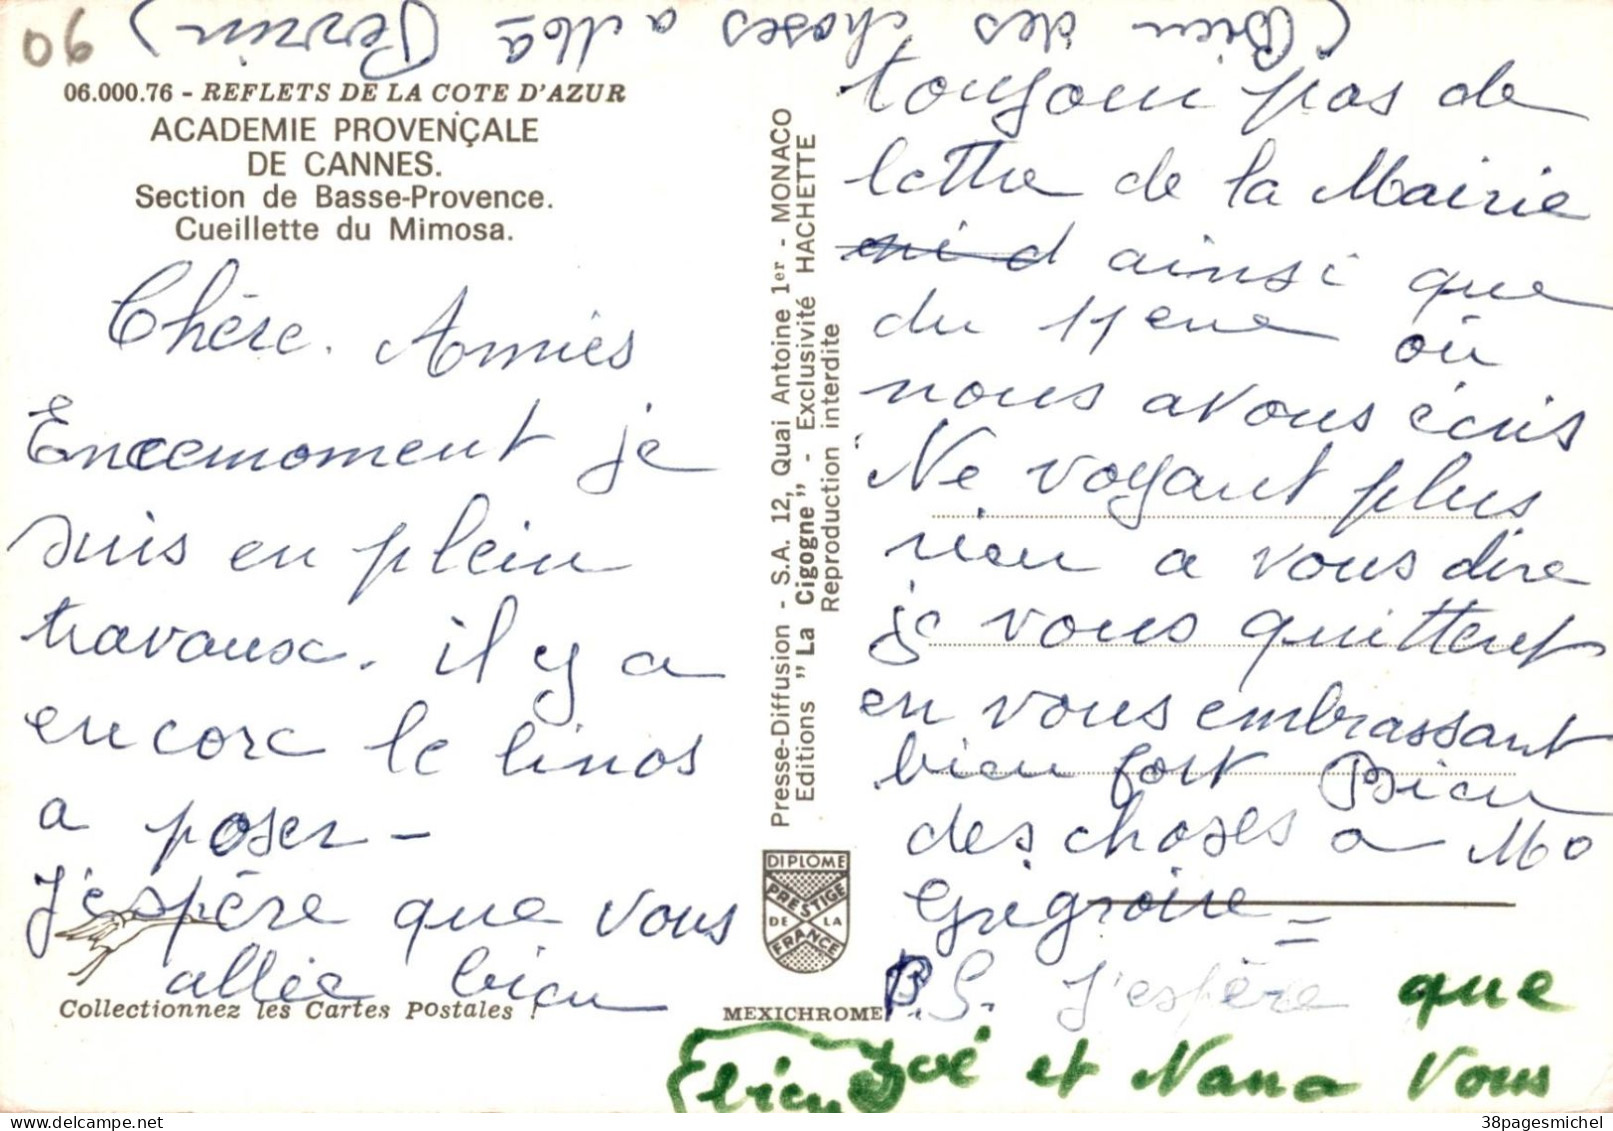 (Bien des choses a Mo Perrin)
90
06.000.76 - REFLETS DE LA COTE D'AZUR
ACADEMIE PROVENÇALE
DE CANNES.
Section de Basse-Provence.
Cueillette du Mimosa.
Chére. Amies
Encemoment je
suis en plein
travaux. il y a
encore le linos
a poser -
J'espère que vous
allée bien
Collectionnez les Cartes Postales !
Presse-Diffusion - S.A. 12, Quai Antoine 1er - MONACO
Editions "La Cigogne" - Exclusivité HACHETTE
Reproduction interdite
DIPLÔME
PRESTIGE
DE LA
FRANCE
MEXICHROME
toujour pas de
lettre de la Mairie
ni d ainsi que
du 11eme où
nous avous écris
Ne voyant plus
rien a vous dire
je vous quitteret
en vous embrassant
bien fort Bien
des choses a Mo
Grégroire =
P.S. J'espère que
Zoé et Nana Vous
bien
38pagesmichel